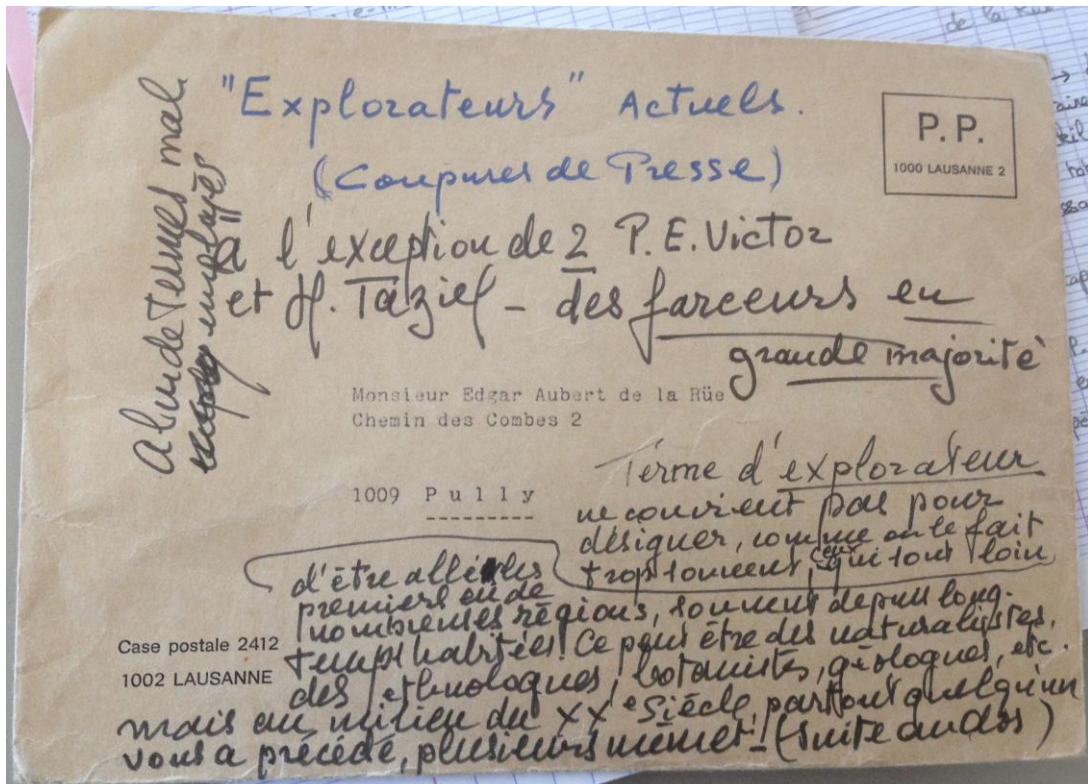 "Explorateurs" Actuels.
(Coupures de Presse)
P.P.
1000 LAUSANNE 2
à l'exception de 2 P.E. Victor
et H. Tazief - des farceurs en
grande majorité
Abus de Termes mal
employés
Monsieur Edgar Aubert de la Rüe
Chemin des Combes 2
1009 Pully
Terme d'explorateur
ne convient pas pour
désigner, comme on le fait
trop souvent, ceux qui sont loin
d'être allés les
premiers en de
nombreuses régions, souvent depuis long-
temps habitées. Ce peut être des naturalistes,
des ethnologues, botanistes, géologues, etc.
mais au milieu du XXe Siècle, partout quelqu'un
vous a précédé, plusieurs même! - (suite au dos)
Case postale 2412
1002 LAUSANNE
de la Rüe